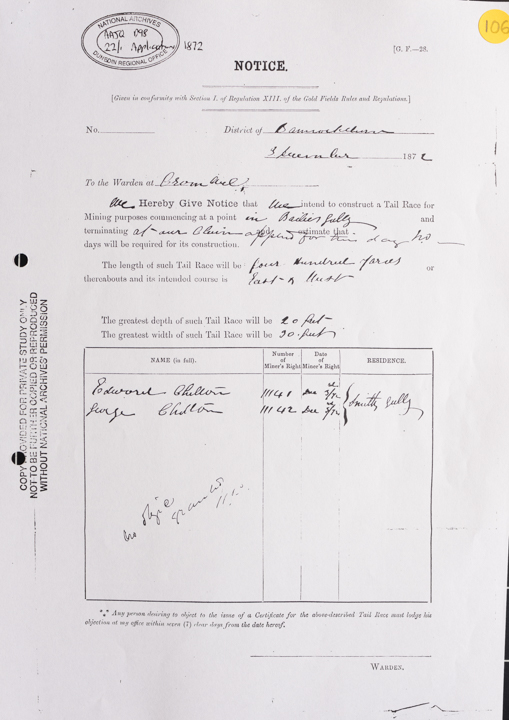 106
NATIONAL ARCHIVES
AAJQ 098
22/1 Application 1872
DUNEDIN REGIONAL OFFICE
[G. F.—28.
NOTICE.
[Given in conformity with Section I. of Regulation XIII. of the Gold Fields Rules and Regulations.]
No. District of Bannockburn
December 1872
To the Warden at Cromwell,
We Hereby Give Notice that We intend to construct a Tail Race for
Mining purposes commencing at a point in Bailies Gully and
terminating at our Claim estimate that
days will be required for its construction.
The length of such Tail Race will be four Hundred yards or
thereabouts and its intended course is East & West
The greatest depth of such Tail Race will be 20 feet
The greatest width of such Tail Race will be 30 feet
NAME (in full). Number of Miner's Right Date of Miner's Right RESIDENCE.
Edward Chilton 11141 Dec 3/72
George Chilton 11142 Dec 3/72 Smiths Gully
granted
*** Any person desiring to object to the issue of a Certificate for the above-described Tail Race must lodge his
objection at my office within seven (7) clear days from the date hereof.
WARDEN.
COPY PROVIDED FOR PRIVATE STUDY ONLY
NOT TO BE FURTHER COPIED OR REPRODUCED
WITHOUT NATIONAL ARCHIVES' PERMISSION